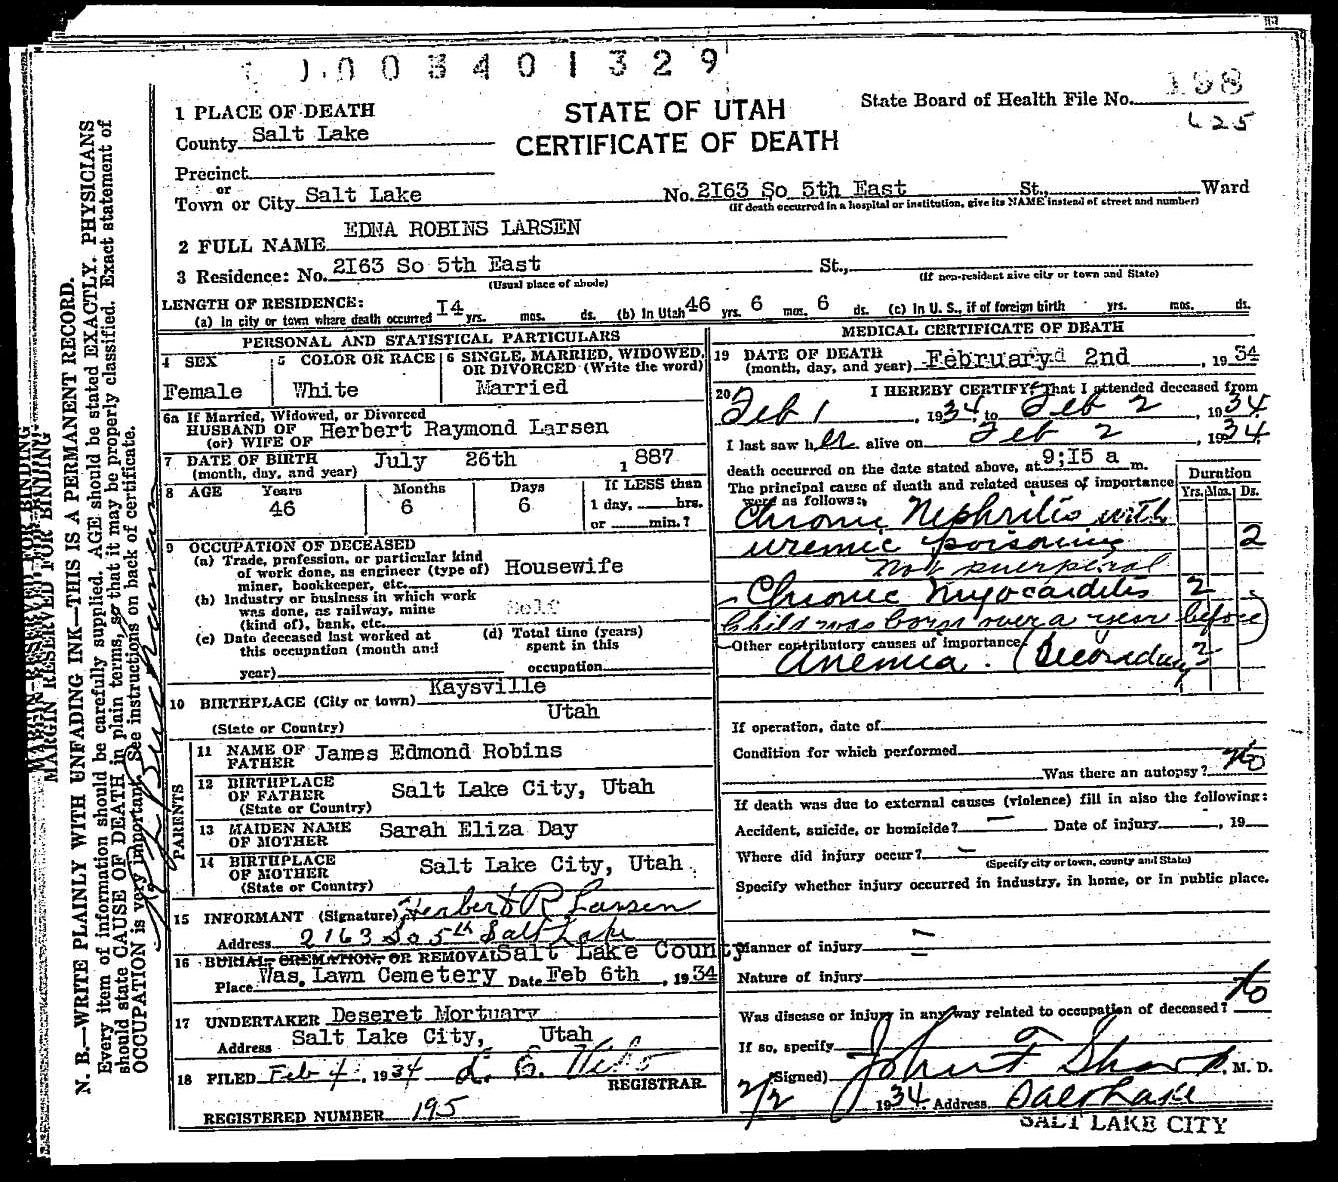 003401329
1 PLACE OF DEATH
STATE OF UTAH
State Board of Health File No. 198
County Salt Lake
CERTIFICATE OF DEATH
625
Precinct
or
Town or City Salt Lake No. 2I63 So 5th East St., Ward
(If death occurred in a hospital or institution, give its NAME instead of street and number)
2 FULL NAME EDNA ROBINS LARSEN
3 Residence: No. 2I63 So 5th East St.,
(Usual place of abode) (If non-resident give city or town and State)
LENGTH OF RESIDENCE:
(a) In city or town where death occurred I4 yrs. mos. ds. (b) In Utah 46 yrs. 6 mos. 6 ds. (c) In U. S., if of foreign birth yrs. mos. ds.
PERSONAL AND STATISTICAL PARTICULARS
4 SEX
Female
5 COLOR OR RACE
White
6 SINGLE, MARRIED, WIDOWED, OR DIVORCED (Write the word)
Married
6a If Married, Widowed, or Divorced
HUSBAND OF
(or) WIFE OF Herbert Raymond Larsen
7 DATE OF BIRTH
(month, day, and year) July 26th 1887
8 AGE Years Months Days If LESS than
46 6 6 1 day, hrs.
or min.?
9 OCCUPATION OF DECEASED
(a) Trade, profession, or particular kind
of work done, as engineer (type of)
miner, bookkeeper, etc. Housewife
(b) Industry or business in which work
was done, as railway, mine
(kind of), bank, etc. Self
(c) Date deceased last worked at
this occupation (month and
year)
(d) Total time (years)
spent in this
occupation
10 BIRTHPLACE (City or town) Kaysville
(State or Country) Utah
PARENTS
11 NAME OF
FATHER James Edmond Robins
12 BIRTHPLACE
OF FATHER
(State or Country) Salt Lake City, Utah
13 MAIDEN NAME
OF MOTHER Sarah Eliza Day
14 BIRTHPLACE
OF MOTHER
(State or Country) Salt Lake City, Utah
15 INFORMANT (Signature) Herbert R Larsen
Address 2163 So 5th Salt Lake
16 BURIAL, CREMATION, OR REMOVAL Salt Lake County
Place Was. Lawn Cemetery Date Feb 6th, 1934
17 UNDERTAKER Deseret Mortuary
Address Salt Lake City, Utah
18 FILED Feb 4, 1934
REGISTRAR.
REGISTERED NUMBER 195
MEDICAL CERTIFICATE OF DEATH
19 DATE OF DEATH
(month, day, and year) February 2nd, 1934
20 I HEREBY CERTIFY, That I attended deceased from
Feb 1, 1934, to Feb 2, 1934
I last saw her alive on Feb 2, 1934
death occurred on the date stated above, at 9;I5 a m.
The principal cause of death and related causes of importance
were as follows:
Duration
Yrs. Mos. Ds.
Chronic Nephritis with
uremic poisoning 2
Not puerperal
Chronic Myocarditis 2
Child was born over a year before
Other contributory causes of importance:
Anemia. (Secondary 2
If operation, date of
Condition for which performed
Was there an autopsy? No
If death was due to external causes (violence) fill in also the following:
Accident, suicide, or homicide? — Date of injury , 19
Where did injury occur? —
(Specify city or town, county and State)
Specify whether injury occurred in industry, in home, or in public place.
Manner of injury —
Nature of injury
Was disease or injury in any way related to occupation of deceased? No
If so, specify
(Signed) John F Sharp, M. D.
2/2 1934 Address Salt Lake
SALT LAKE CITY
MARGIN RESERVED FOR BINDING
N. B.—WRITE PLAINLY WITH UNFADING INK—THIS IS A PERMANENT RECORD.
Every item of information should be carefully supplied. AGE should be stated EXACTLY. PHYSICIANS
should state CAUSE OF DEATH in plain terms, so that it may be properly classified. Exact statement of
OCCUPATION is very important. See instructions on back of certificate.